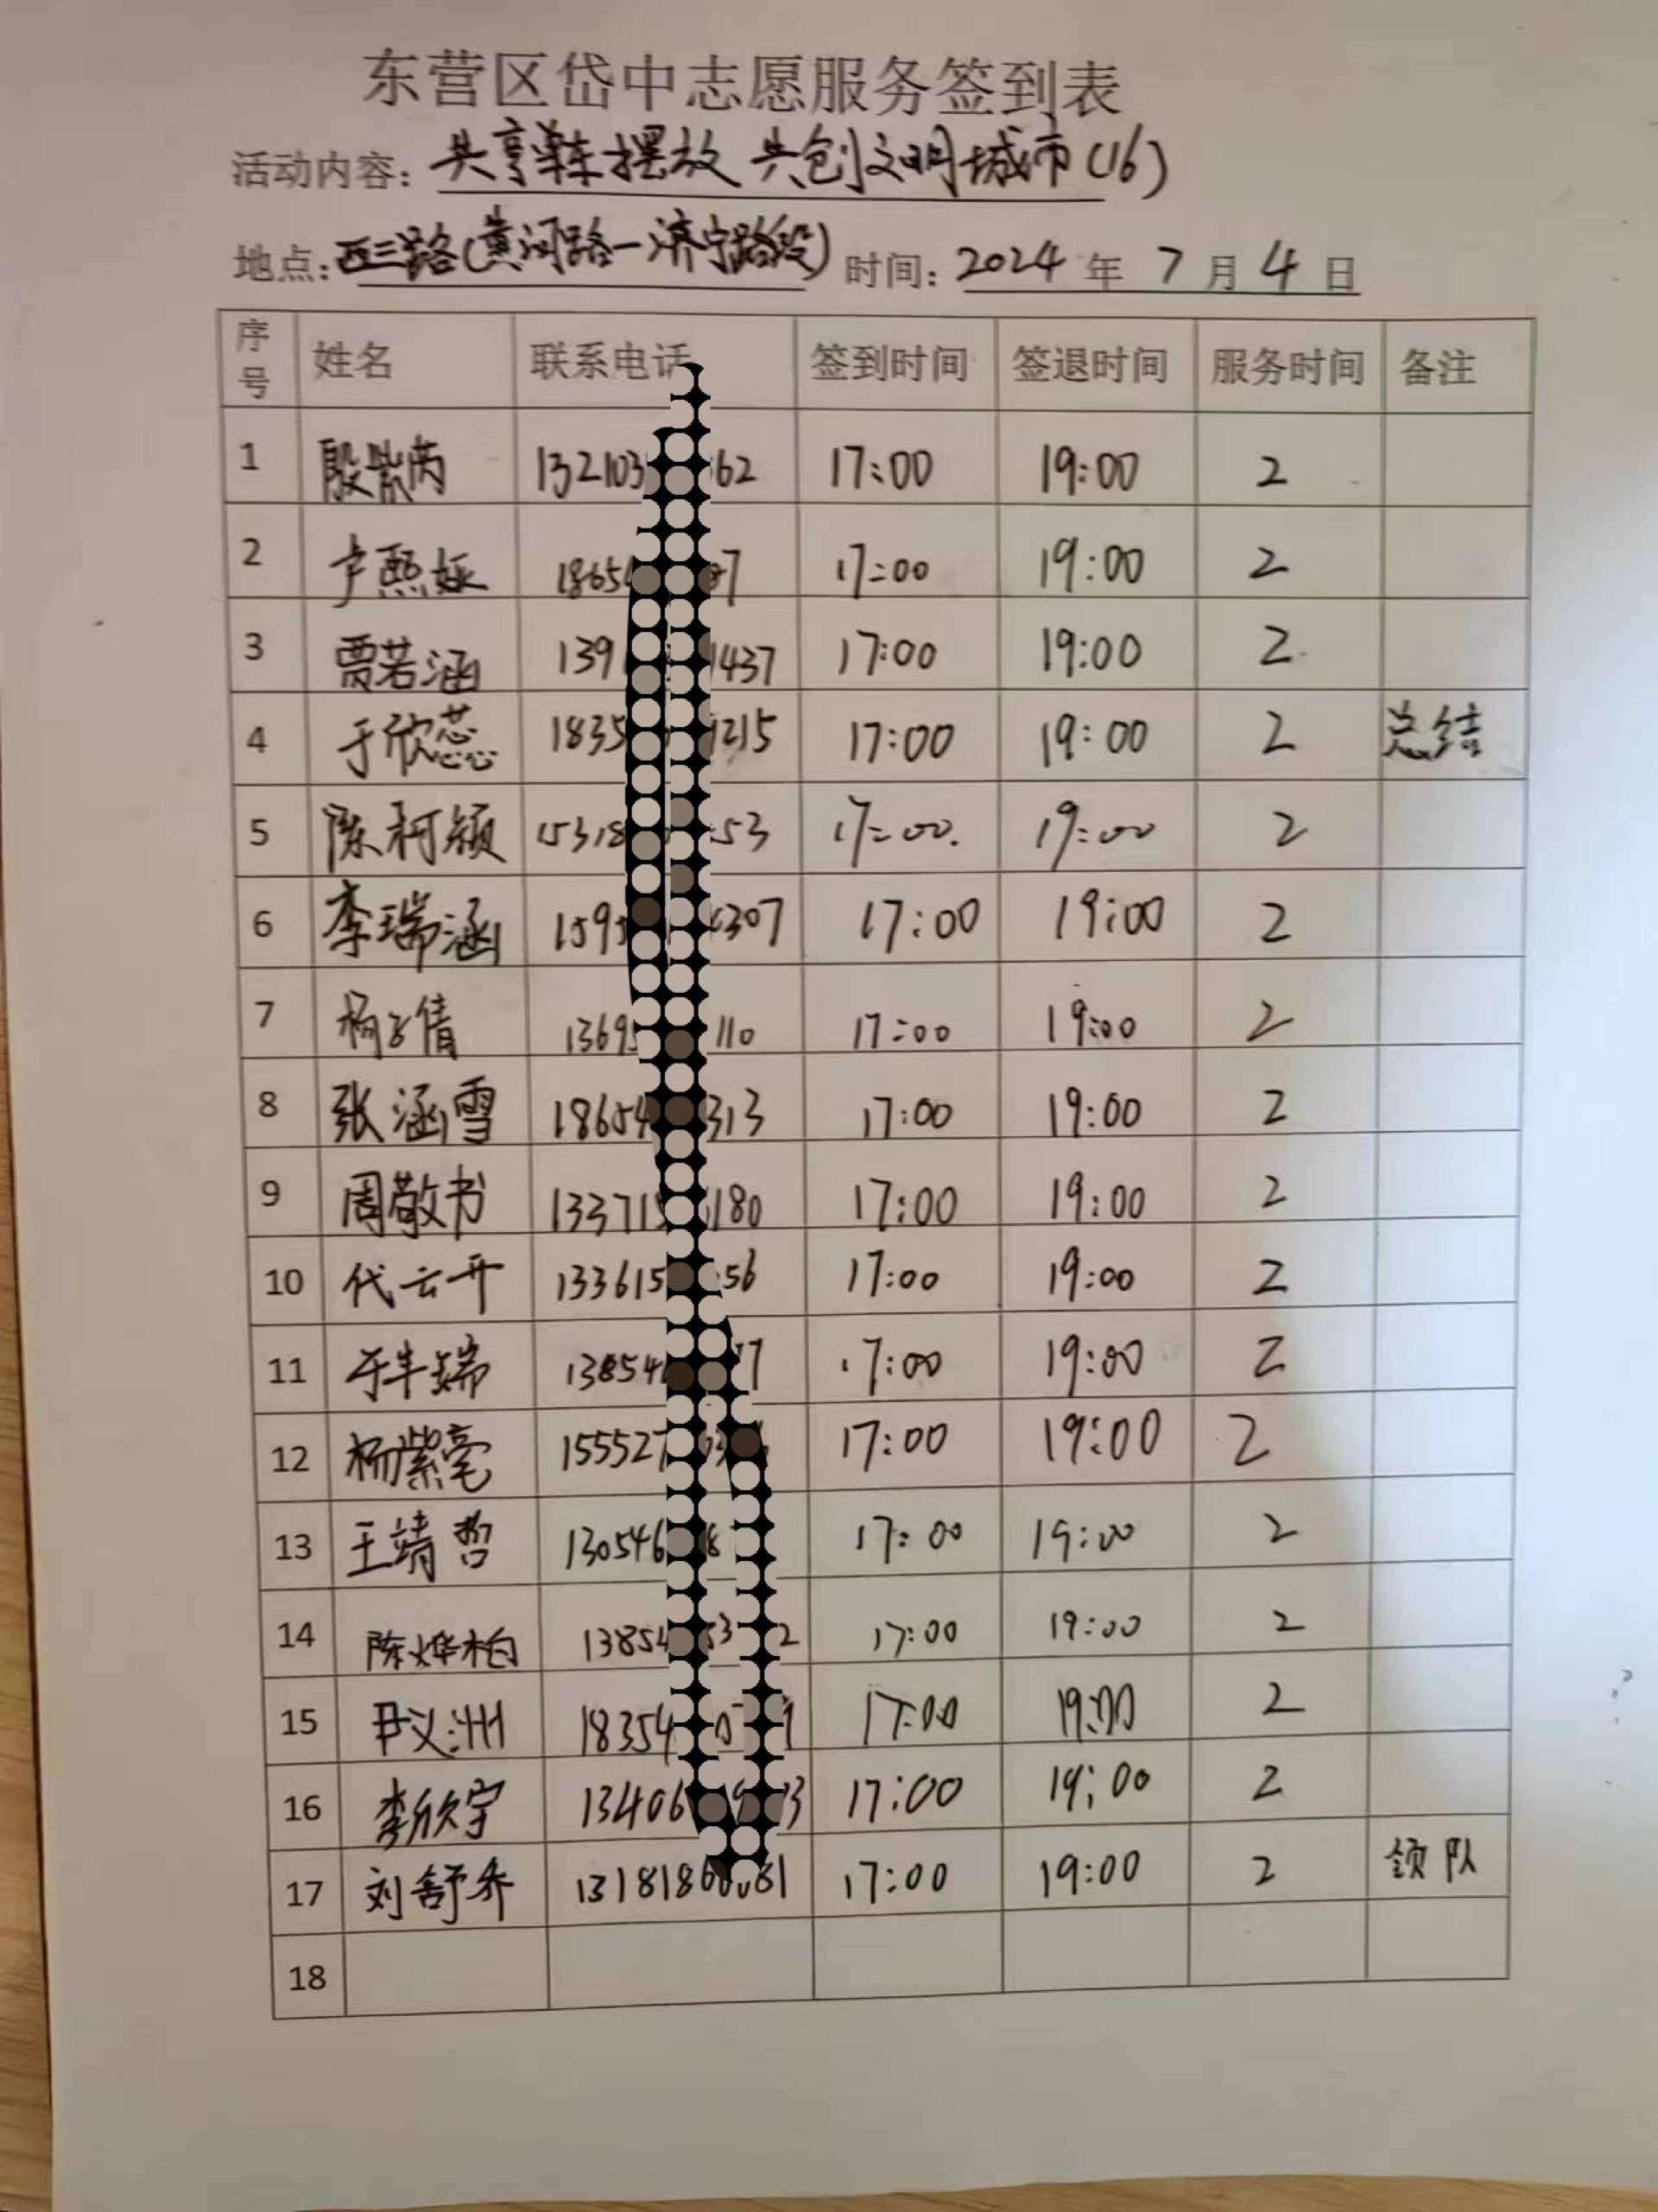 东营区岱中志愿服务签到表
活动内容: 共享单车摆放 共创文明城市(16)
地点: 西三路(黄河路一济宁路段) 时间: 2024 年 7 月 4 日
序号 姓名 联系电话 签到时间 签退时间 服务时间 备注
1 殷紫芮 132103 62 17:00 19:00 2
2 卢熙娅 1865 7 17:00 19:00 2
3 贾若涵 139 1437 17:00 19:00 2
4 于欣蕊 1835 1215 17:00 19:00 2 总结
5 陈柯颖 15318 53 17:00 19:00 2
6 李瑞涵 1595 307 17:00 19:00 2
7 杨子倩 1369 110 17:00 19:00 2
8 张涵雪 18654 313 17:00 19:00 2
9 周敬书 13371 180 17:00 19:00 2
10 代云开 133615 56 17:00 19:00 2
11 于丰瑞 13854 7 17:00 19:00 2
12 杨紫亳 155527 17:00 19:00 2
13 王靖哲 130546 8 17:00 19:00 2
14 陈烨柏 13854 53 2 17:00 19:00 2
15 尹义洲 18354 17:00 19:00 2
16 李欣宇 13406 3 17:00 19:00 2
17 刘舒乔 1318186 81 17:00 19:00 2 领队
18